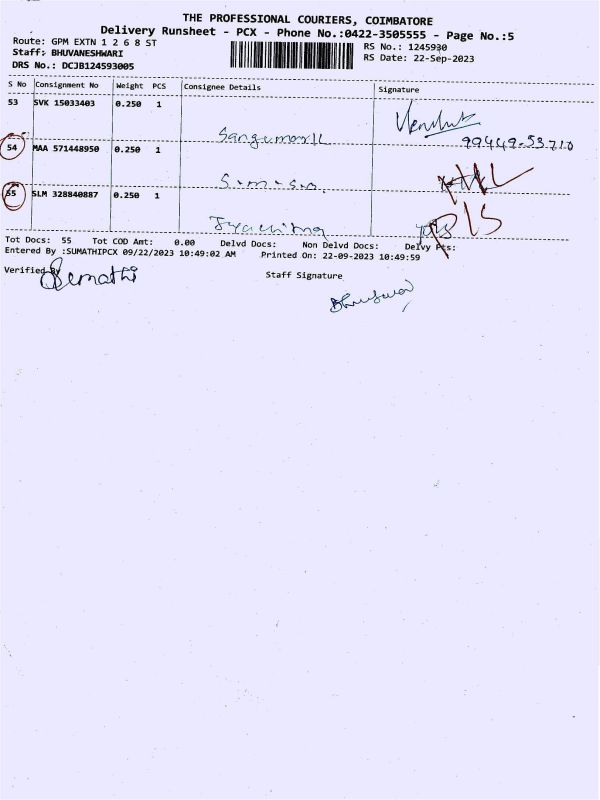 THE PROFESSIONAL COURIERS, COIMBATORE
Delivery Runsheet - PCX - Phone No.:0422-3505555 - Page No.:5
Route: GPM EXTN 1 2 6 8 ST
RS No.: 1245930
Staff: BHUVANESHWARI
RS Date: 22-Sep-2023
DRS No.: DCJB124593005
S No Consignment No Weight PCS Consignee Details Signature
53 SVK 15033403 0.250 1
99449-53710
54 MAA 571448950 0.250 1
55 SLM 328840887 0.250 1
Tot Docs: 55 Tot COD Amt: 0.00 Delvd Docs: Non Delvd Docs: Delvy Pts:
Entered By :SUMATHIPCX 09/22/2023 10:49:02 AM Printed On: 22-09-2023 10:49:59
Verified By Sumathi
Staff Signature